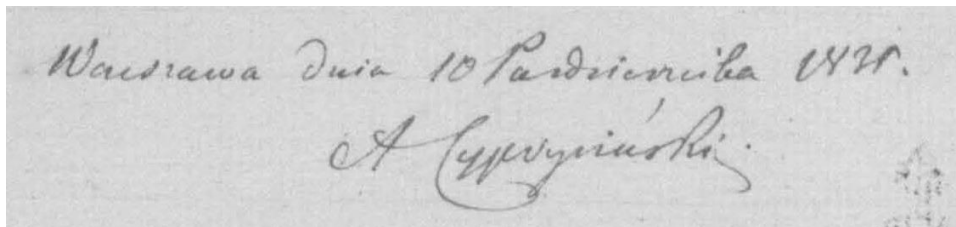 Warszawa dnia 10 Października
A Cyprysiński.